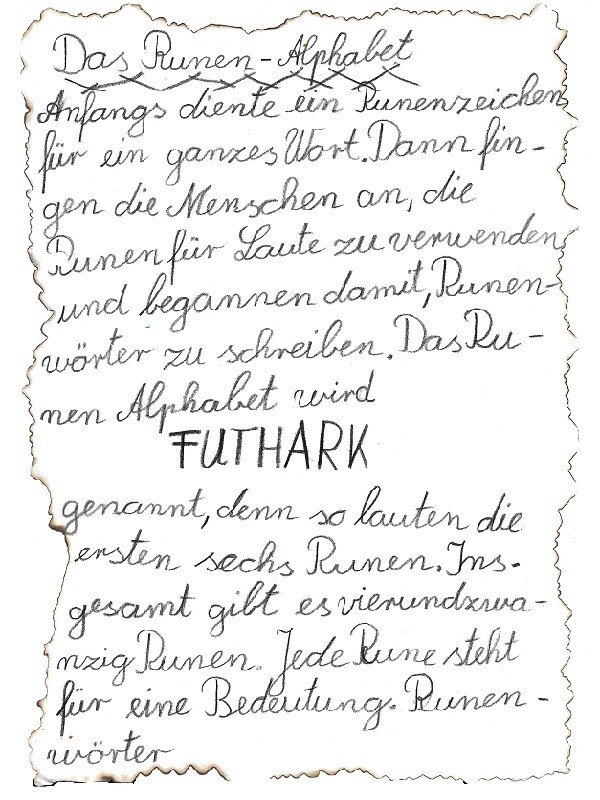 Das Runen-Alphabet
Anfangs diente ein Runenzeichen
für ein ganzes Wort. Dann fin-
gen die Menschen an, die
Runen für Laute zu verwenden
und begannen damit, Runen-
wörter zu schreiben. Das Ru-
nen Alphabet wird
FUTHARK
genannt, denn so lauten die
ersten sechs Runen. Ins-
gesamt gibt es vierundzwa-
nzig Runen. Jede Rune steht
für eine Bedeutung. Runen-
wörter